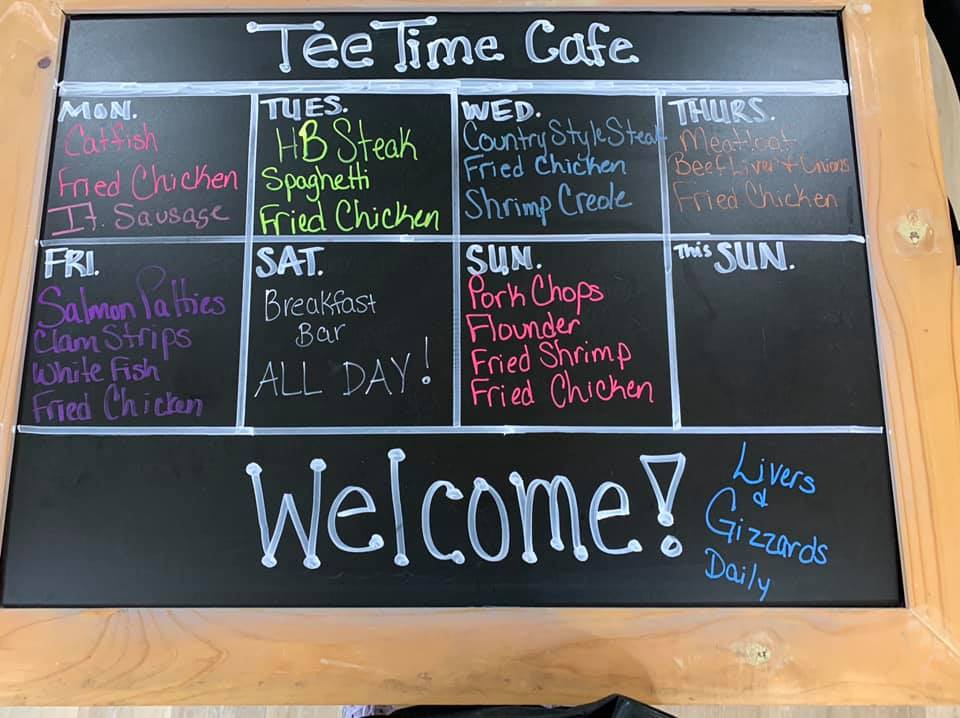 Tee Time Cafe
MON.
Catfish
Fried Chicken
It. Sausage
TUES.
HB Steak
Spaghetti
Fried Chicken
WED.
Country Style Steak
Fried Chicken
Shrimp Creole
THURS.
Meatloaf
Beef Liver & Onions
Fried Chicken
FRI.
Salmon Patties
Clam Strips
White Fish
Fried Chicken
SAT.
Breakfast
Bar
ALL DAY!
SUN.
Pork Chops
Flounder
Fried Shrimp
Fried Chicken
This SUN.
Welcome!
Livers
&
Gizzards
Daily